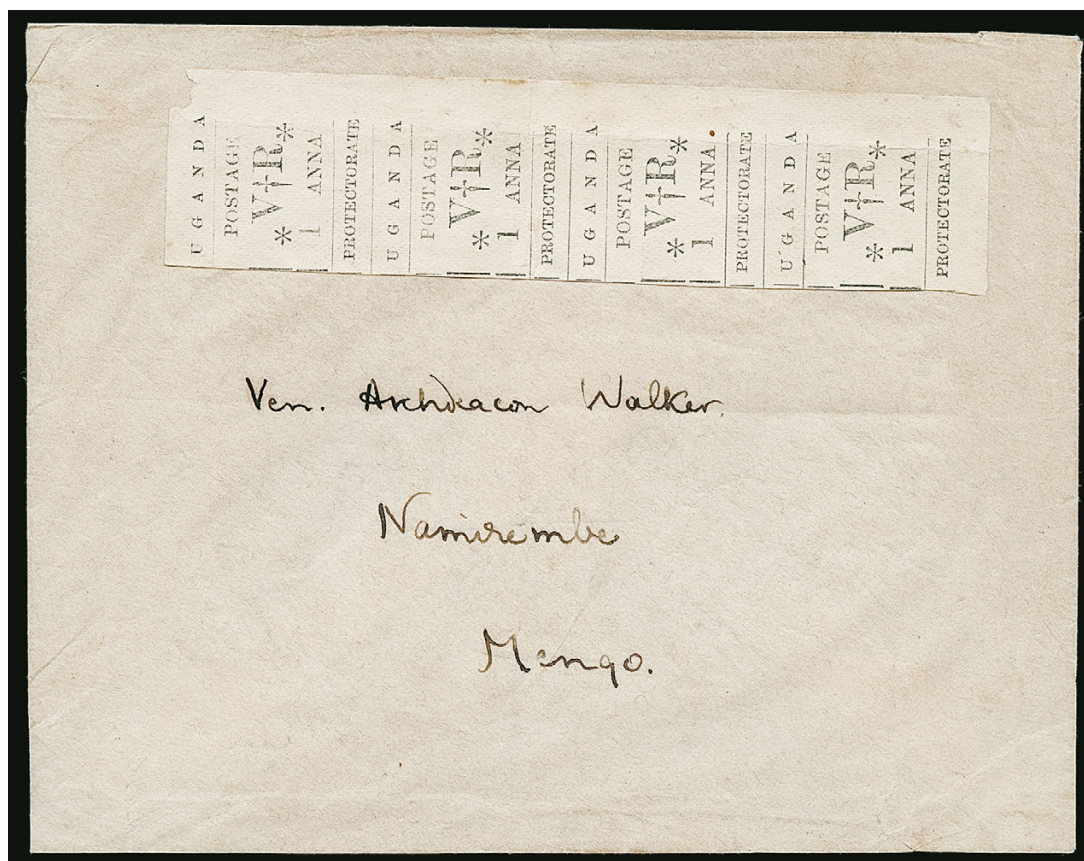 UGANDA
POSTAGE
* V†R *
1 ANNA
PROTECTORATE
UGANDA
POSTAGE
* V†R *
1 ANNA
PROTECTORATE
UGANDA
POSTAGE
* V†R *
1 ANNA
PROTECTORATE
UGANDA
POSTAGE
* V†R *
1 ANNA
PROTECTORATE
Ven. Archdeacon Walker.
Namirembe
Mengo.